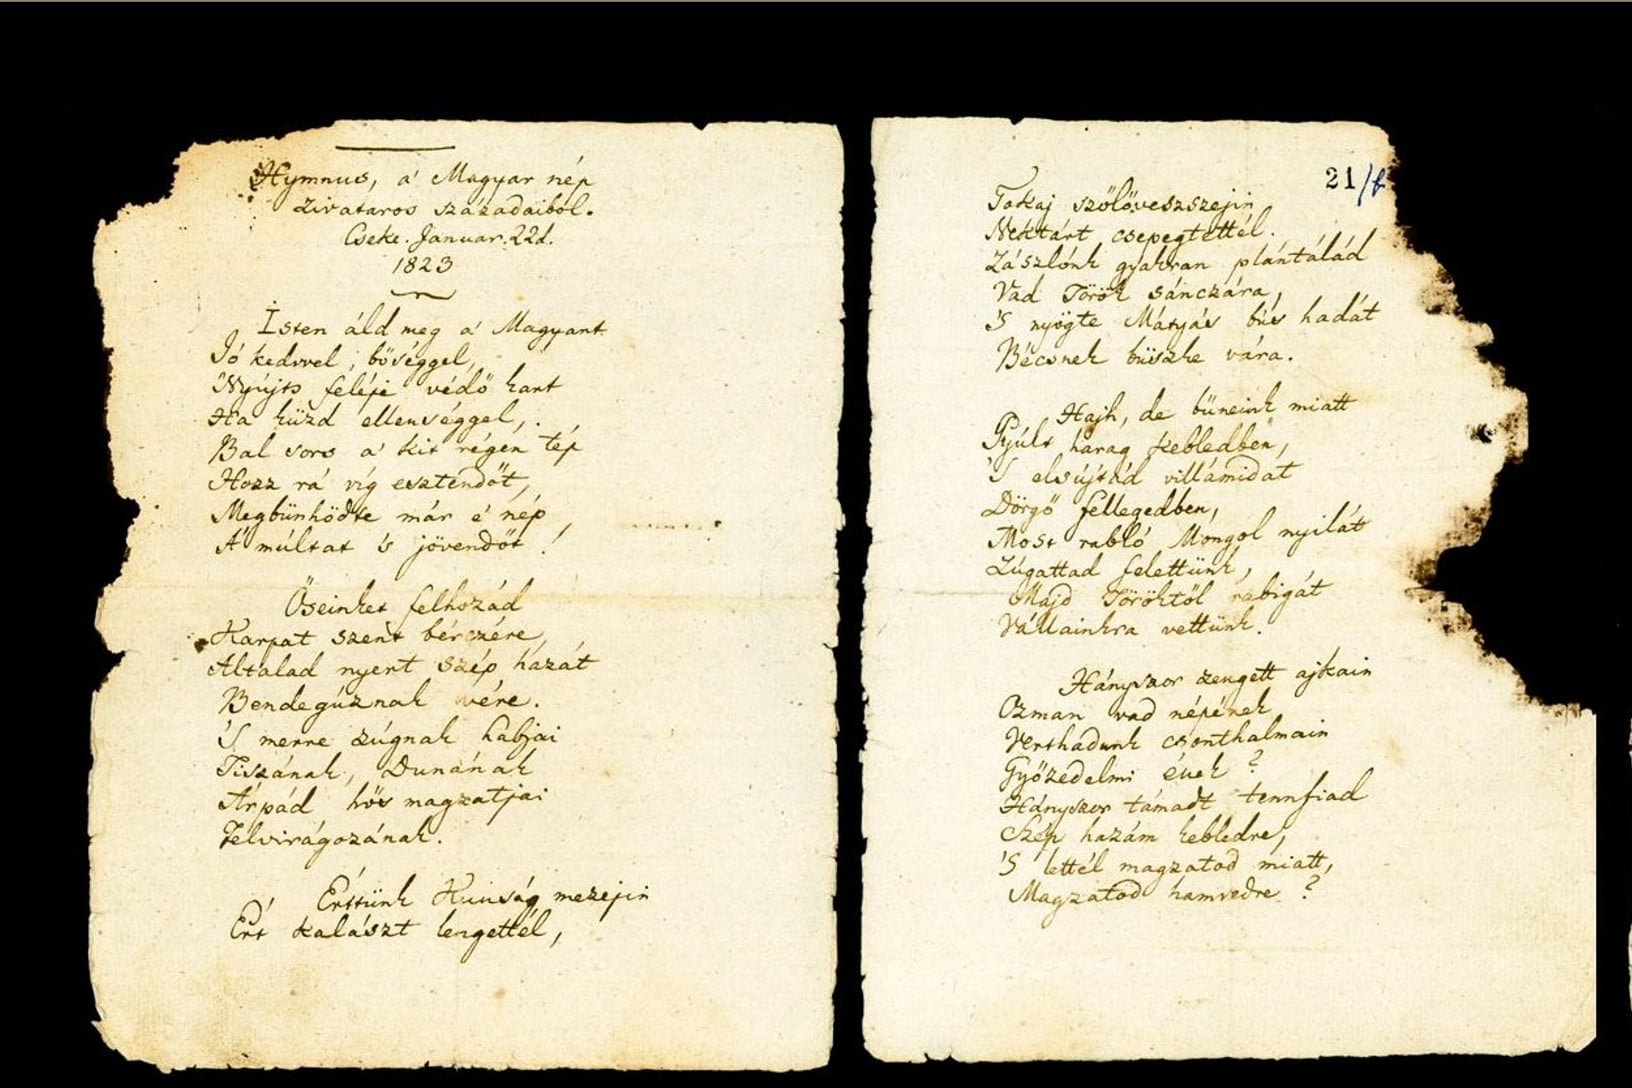 Hymnus, a' Magyar nép
zivataros századaiból.
Cseke. Januar. 22d.
1823
Isten áld meg a' Magyart
Jó kedvvel, bőséggel,
Nyújts feléje védő kart
Ha küzd ellenséggel,
Bal sors a' kit régen tép
Hozz rá víg esztendőt,
Megbünhödte már e' nép
A' múltat 's jövendőt!
Őseinket felhozád
Kárpat szent bérczére,
Általad nyert szép hazát
Bendegúznak vére.
'S merre zúgnak habjai
Tiszának, Dunának
Árpád hős magzatjai
Felvirágozának.
Értünk Kunság mezejin
Ért kalászt lengettél,
21/b
Tokaj szőlővesszejin
Nektárt csepegtettél.
Zászlónk gyakran plántálád
Vad Török sánczára,
'S nyögte Mátyás bús hadát
Bécsnek büszke vára.
Hajh, de büneink miatt
Gyúlt harag kebledben,
'S elsújtád villámidat
Dörgő fellegedben,
Most rabló Mongol nyilát
Zúgattad felettünk,
Majd Töröktől rabigát
Vállainkra vettünk.
Hányszor zengett ajkain
Ozman vad népének
Verthadunk csonthalmain
Győzedelmi ének?
Hányszor támadt tennfiad
Szép hazám kebledre,
'S lettél magzatod miatt,
Magzatod hamvedre?